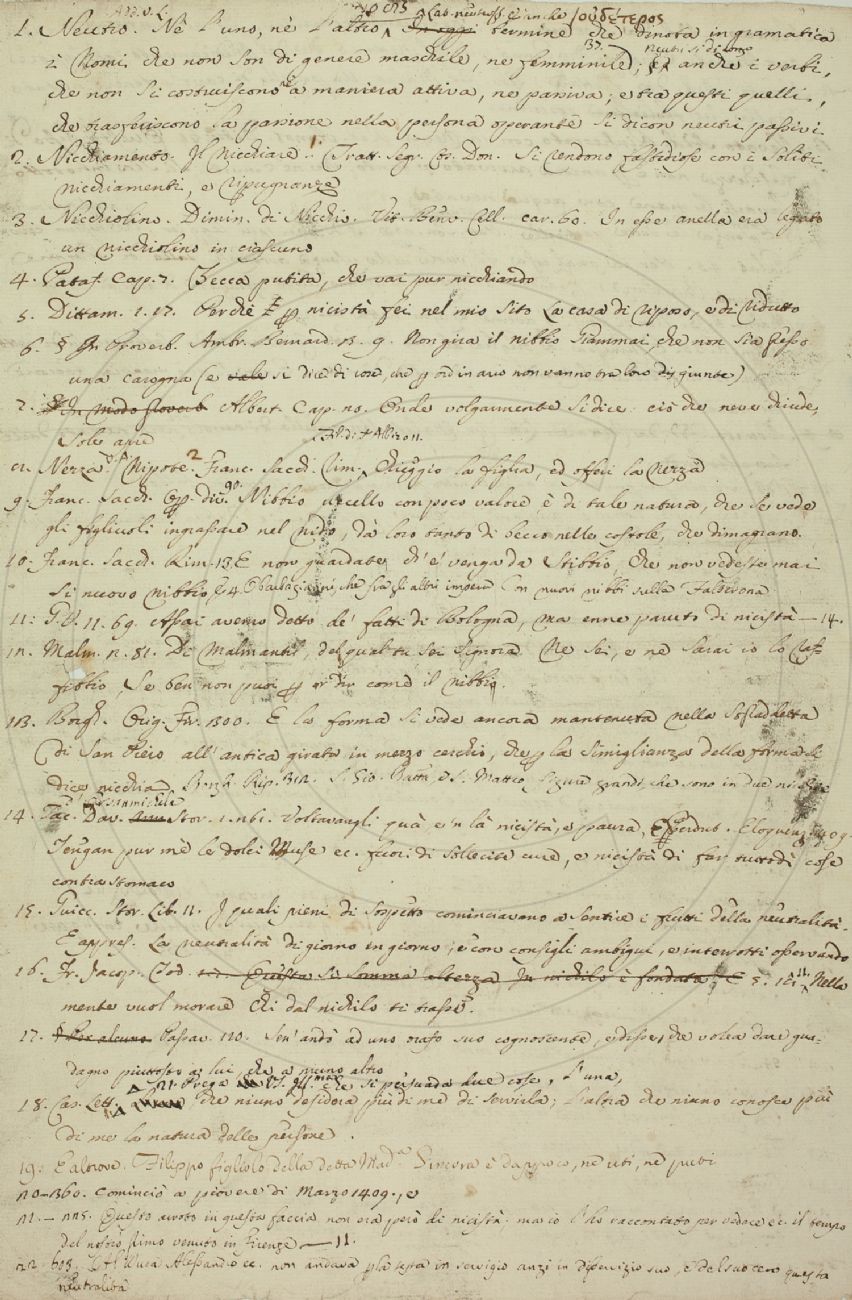 1. Neutro. Nè l'uno, nè l'altro, Lat. neutrum termine che dinota in gramatica οὐδέτερος
i Nomi, che non son di genere maschile, ne femminile; anche i verbi,
che non si costruiscono a maniera attiva, ne passiva; e tra questi quelli,
che trasferiscono la passione nella persona operante si dicon neutri passivi.
2. Nicchiamento. Il Nicchiare. Tratt. Segr. Cos. Don. Si rendono fastidiose con i soliti
nicchiamenti, e ripugnanze
3. Nicchiolino. Dimin. di Nicchio. Vit. Benv. Cell. car. 60. In esse anella era legato
un nicchiolino in ciascuno
4. Pataff. Cap. 7. Becca putita, che vai pur nicchiando
5. Dittam. 1. 17. Perchè nicistà fei nel mio sito La casa di riposo, e di ridutto
6. § Proverb. Ambr. Bernard. 9. Non gira il nibbio giammai, che non sia presso
una carogna (e si dice di cose, che ordinario non vanno tra loro disgiunte)
7. In modo proverb. Albert. Cap. Onde volgarmente si dice: ciò che neve chiude,
Sole apre
Nezza. Nipote. Franc. Sacch. rim. Cheggio la figlia, ed offeri la Nezza
9. Franc. Sacch. Op. div. 90. Nibbio uccello con poco valore, è di tale natura, che se vede
gli figliuoli ingrassare nel nido, dà loro tanto di becco nelle costole, che dimagrano.
10. Franc. Sacch. Rim. 13. E non guardate ch' e' venga da Stibbio, Che non vedeste mai
si nuovo nibbio che fra gli altri impera Con nuovi nibbi sulla Falterona
11. G. V. 11. 69. Assai avemo detto de' fatti di Bologna, ma enne paruto di nicistà — 14.
12. Malm. 2. 81. Di Malmantil, del qual tu sei Signora Ne sei, e ne sarai io lo raf-
fibbio, Se ben non puoi dir come il nibbio.
13. Borgh. Orig. Fir. 300. E la forma si vede ancora mantenuta nella
di San Piero all'antica girata in mezzo cerchio, che per la simiglianza della forma si
dice nicchia Borgh. Rip. 312. S. Gio: Batta, e S. Matteo, figure grandi, che sono in due nicchie
14. Tac. Dav. Stor. 1. 261. Voltavangli quà, e 'n là nicistà, e paura, Perdut. Eloquenz. 409.
Tengan pur me le dolci Muse ec. fuori di sollecite cure, e nicistà di far tuttodì cose
contra stomaco
15. Guicc. Stor. Lib. 11. I quali pieni di sospetto cominciavano a sentire i frutti della neutralità.
E appress. La neutralità di giorno in giorno, e con consigli ambigui, e interrotti osservando
16. Fr. Jacop. Tod. Questa si somma altezza In nichilo è fondata, E 5. Nella
mente vuol morare Chi dal nichilo ti trasse.
17. § Per alcuno Passav. 120. Sen' andò ad uno orafo suo cognoscente, e disse, che volea dare gua-
dagno piuttosto a lui, che a niuno altro
18. Cas. Lett. 21. Prega V. S. Illma che si persuada due cose, l'una,
che niuno desidera più di me di servirla; l'altra che niuno conosce più
di me la natura delle persone.
19. E altrove. Filippo figliolo della detta Mad.a Ginevra è dappoco, nè uti, nè puti
20 - 360. Cominciò a piovere di Marzo 1409., e
21. - 225. Questo arroto in questa faccia non era però di nicistà: ma io l'ho raccontato per vedere ec. il tempo
del nostro primo venuto in Firenze — 11.
22. 603. L'Al Duca Alessandro ec. non andava per la testa in servigio anzi in disservizio suo, e del suocero questa
neutralità